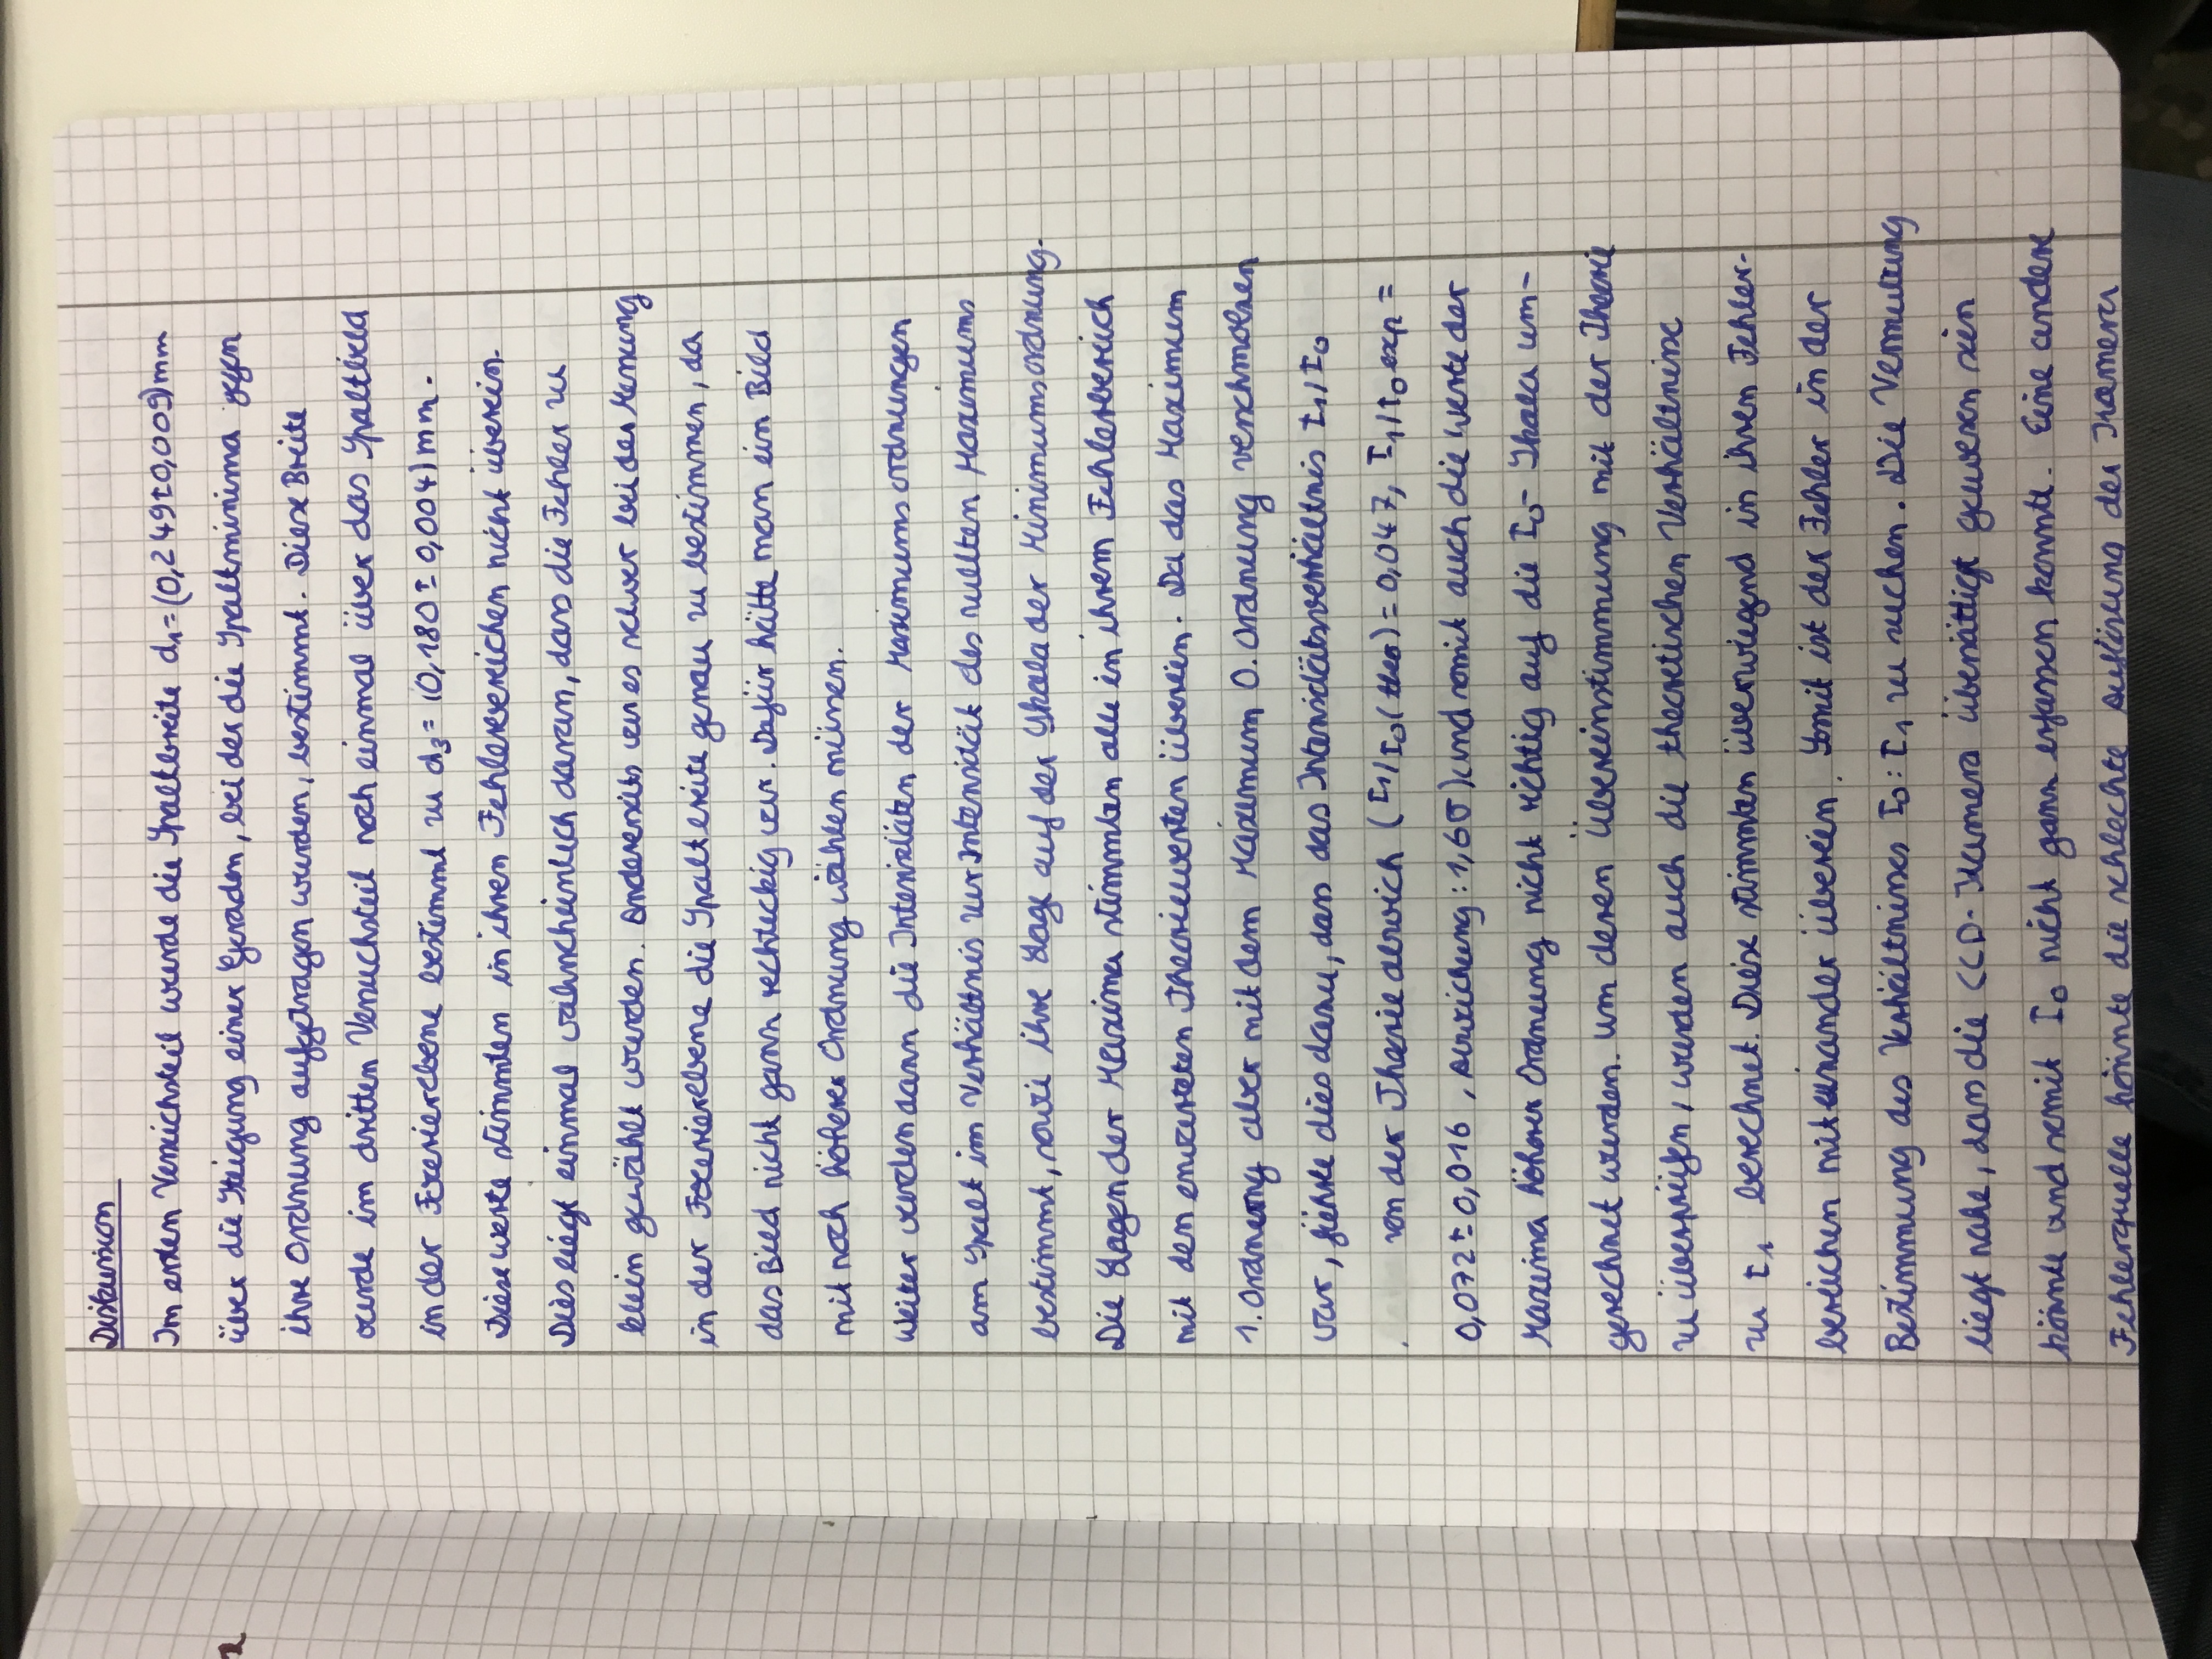 Diskussion
Im ersten Versuchsteil wurde die Spaltbreite d₁=(0,249±0,009)mm
über die Steigung einer Geraden, bei der die Spaltminima gegen
ihre Ordnung aufgetragen wurden, bestimmt. Diese Breite
wurde im dritten Versuchsteil noch einmal über das Spaltbild
in der Fourierebene bestimmt zu d₃= (0,180±0,004)mm.
Diese Werte stimmten in ihren Fehlerbereichen nicht überein.
Dies liegt einmal wahrscheinlich daran, dass die Fehler zu
klein gewählt wurden. Andererseits war es schwer bei der Messung
in der Fourierebene die Spaltbreite genau zu bestimmen, da
das Bild nicht ganz rechteckig war. Dafür hätte man ein Bild
mit noch höherer Ordnung wählen müssen.
Weiter wurden dann die Intensitäten der Maximumsordnungen
am Spalt im Verhältnis zur Intensität des nullten Maximums
bestimmt, sowie ihre Lage auf der Skala der Minimumsordnung.
Die Lagen der Maxima stimmten alle in ihrem Fehlerbereich
mit den erwarteten Theoriewerten überein. Da das Maximum
1. Ordnung aber mit dem Maximum 0. Ordnung verschmolzen
war, führte dies dazu, dass das Intensitätsverhältnis I₁/I₀
von der Theorie abwich (I₁/I₀(theo)=0,047, I₁/I₀ exp =
0,072±0,016, Abweichung: 1,6σ) und somit auch die Werte der
Maxima höherer Ordnung nicht richtig auf die I₀- Skala um-
gerechnet wurden. Um deren Übereinstimmung mit der Theorie
zu überprüfen, wurden auch die theoretischen Verhältnisse
zu I₁ berechnet. Diese stimmten überwiegend in ihren Fehler-
bereichen miteinander überein. Somit ist der Fehler in der
Bestimmung des Verhältnisses I₀:I₁ zu suchen. Die Vermutung
liegt nahe, dass die CCD-Kamera übersättigt gewesen sein
könnte und somit I₀ nicht ganz erfassen konnte. Eine andere
Fehlerquelle könnte die schlechte Auflösung der Kamera